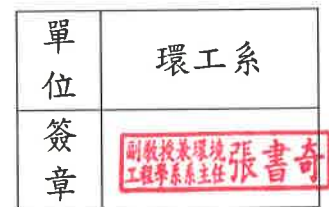 單位
環工系
簽章
副教授兼環境
工程學系系主任
張書奇